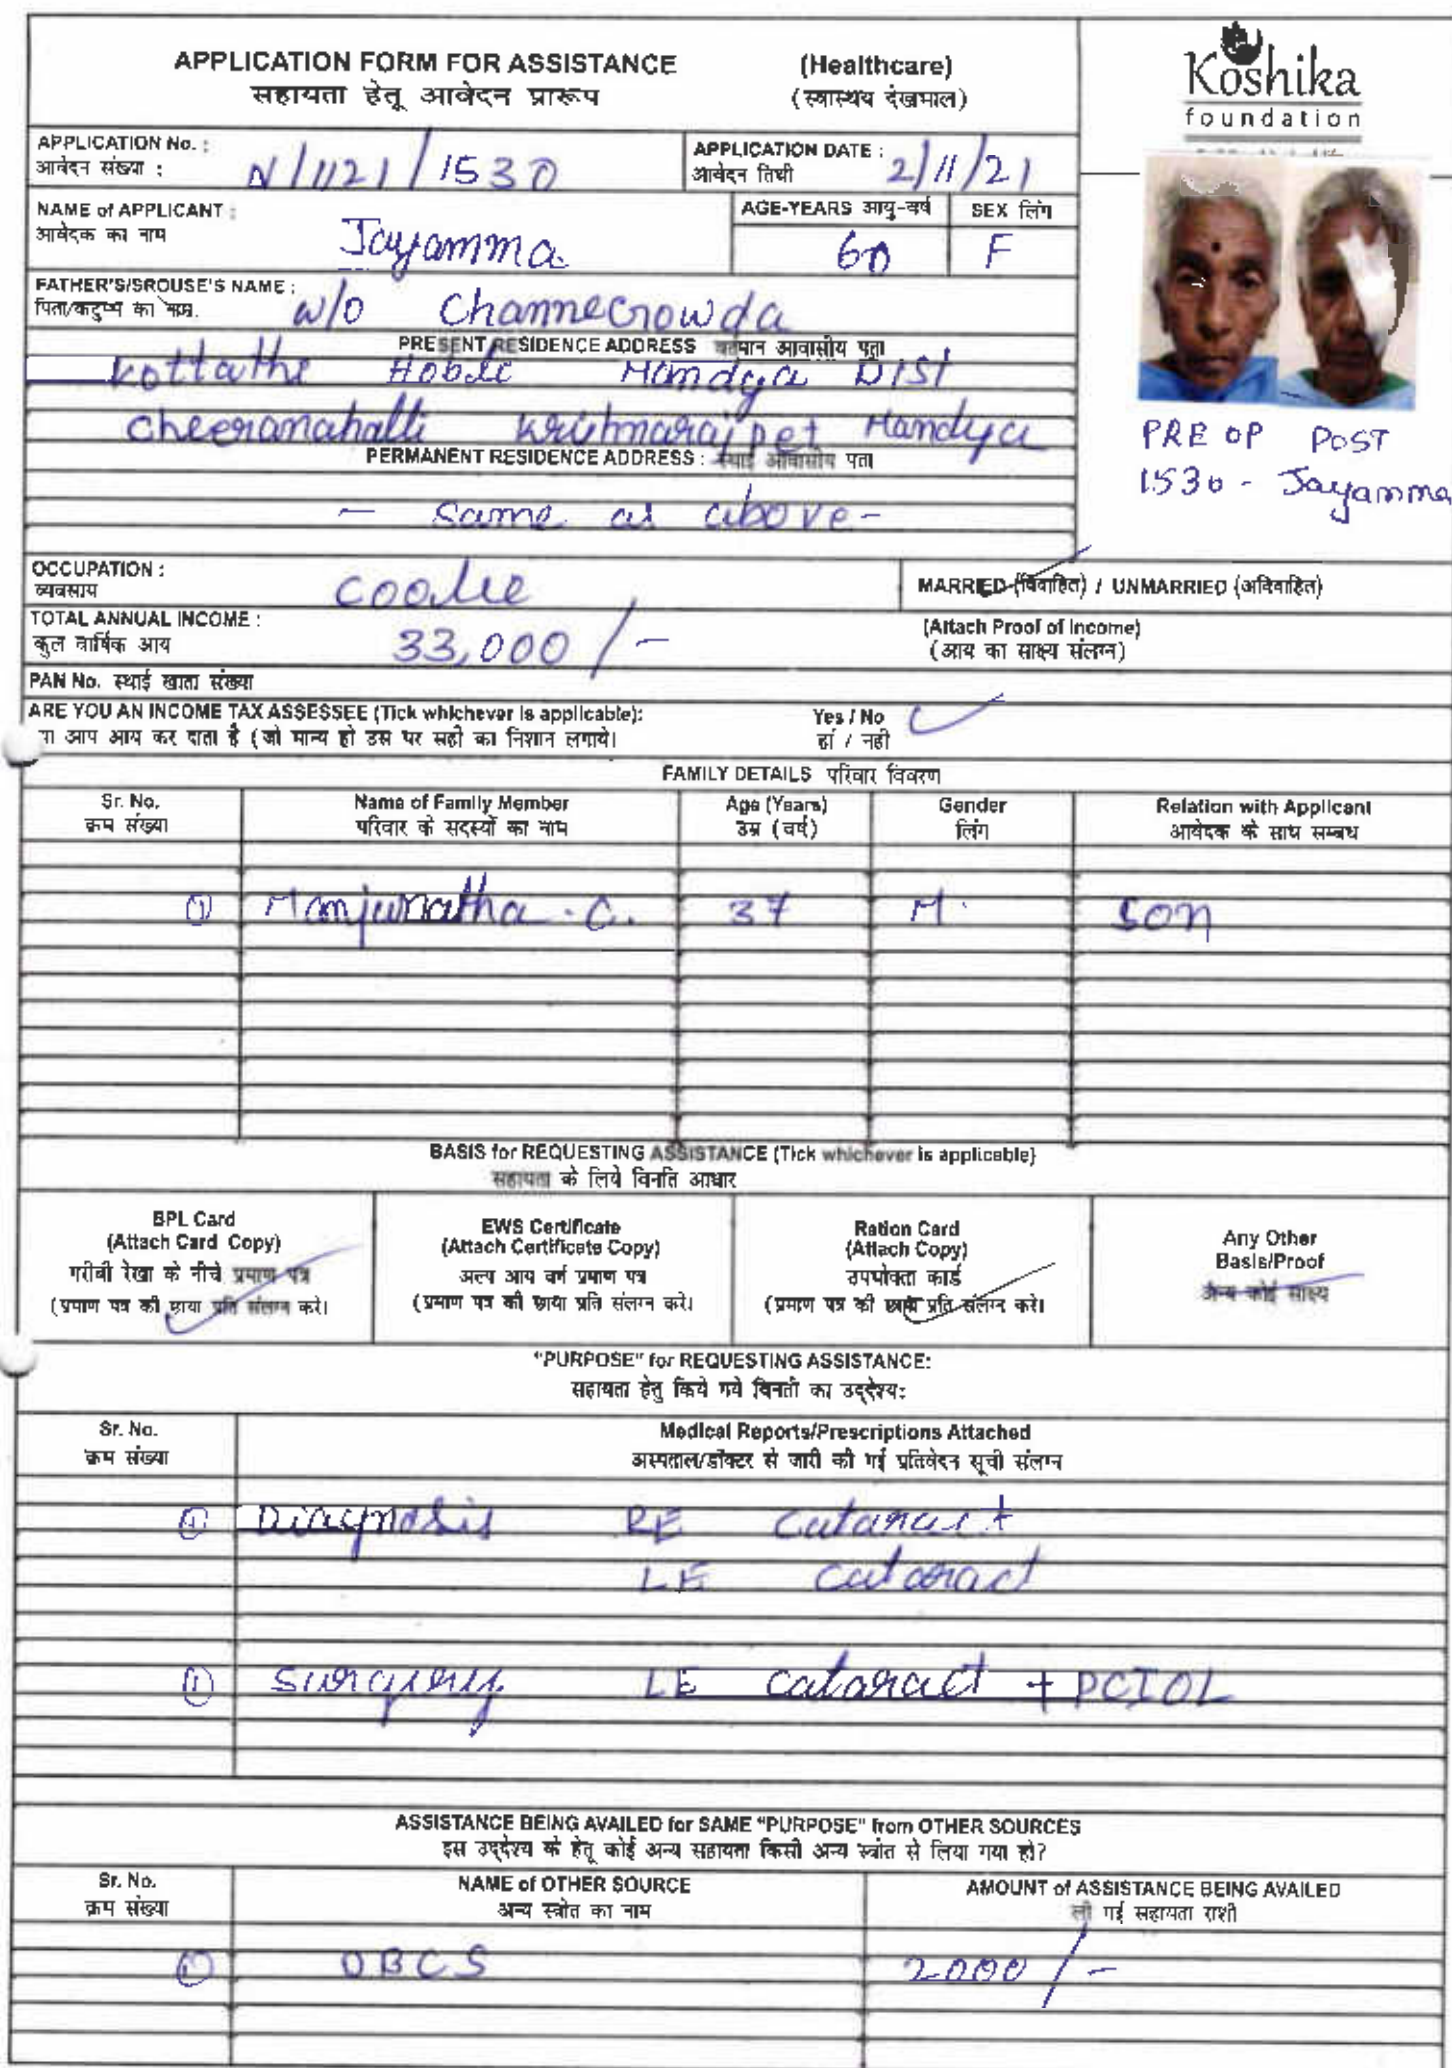 APPLICATION FORM FOR ASSISTANCE (Healthcare)
सहायता हेतू आवेदन प्रारूप (स्वास्थय देखभाल)
Koshika
foundation
APPLICATION No. :
आवेदन संख्या : N/1121/1530
APPLICATION DATE :
आवेदन तिथी 2/11/21
NAME of APPLICANT :
आवेदक का नाम Jayamma
AGE-YEARS आयु-वर्ष SEX लिंग
60 F
FATHER'S/SROUSE'S NAME :
पिता/कटुम्ब का नाम. w/o ChanneGowda
PRESENT RESIDENCE ADDRESS वर्तमान आवासीय पता
Kottathe Hobli Mandya DIST
Cheeranahalli Krishnarajpet Mandya
PERMANENT RESIDENCE ADDRESS : स्थाई आवासीय पता
- Same as above -
PRE OP POST
1530 - Jayamma
OCCUPATION :
व्यवसाय coolie
MARRIED (विवाहित) / UNMARRIED (अविवाहित)
TOTAL ANNUAL INCOME :
कुल वार्षिक आय 33,000/-
(Attach Proof of Income)
(आय का साक्ष्य संलग्न)
PAN No. स्थाई खाता संख्या
ARE YOU AN INCOME TAX ASSESSEE (Tick whichever is applicable): Yes / No
या आप आय कर दाता है (जो मान्य हो उस पर सही का निशान लगाये। हां / नही
FAMILY DETAILS परिवार विवरण
Sr. No. Name of Family Member Age (Years) Gender Relation with Applicant
क्रम संख्या परिवार के सदस्यों का नाम उम्र (वर्ष) लिंग आवेदक के साथ सम्बध
1 Manjunatha . C. 37 M. Son
BASIS for REQUESTING ASSISTANCE (Tick whichever is applicable)
सहायता के लिये विनति आधार
BPL Card
(Attach Card Copy)
गरीबी रेखा के नीचे प्रमाण पत्र
(प्रमाण पत्र की छाया प्रति संलग्न करे।
EWS Certificate
(Attach Certificate Copy)
अल्प आय वर्ग प्रमाण पत्र
(प्रमाण पत्र की छाया प्रति संलग्न करे।
Ration Card
(Attach Copy)
उपभोक्ता कार्ड
(प्रमाण पत्र की छाया प्रति संलग्न करे।
Any Other
Basis/Proof
अन्य कोई साक्ष्य
"PURPOSE" for REQUESTING ASSISTANCE:
सहायता हेतु किये गये विनती का उद्देश्य:
Sr. No. Medical Reports/Prescriptions Attached
क्रम संख्या अस्पताल/डॉक्टर से जारी की गई प्रतिवेदन सूची संलग्न
1 Diagnosis RE Cataract
LE cataract
1 Surgery LE cataract + PCIOL
ASSISTANCE BEING AVAILED for SAME "PURPOSE" from OTHER SOURCES
इस उद्देश्य के हेतू कोई अन्य सहायता किसी अन्य स्त्रोत से लिया गया हो?
Sr. No. NAME of OTHER SOURCE AMOUNT of ASSISTANCE BEING AVAILED
क्रम संख्या अन्य स्त्रोत का नाम ली गई सहायता राशी
1 DBCS 2000/-